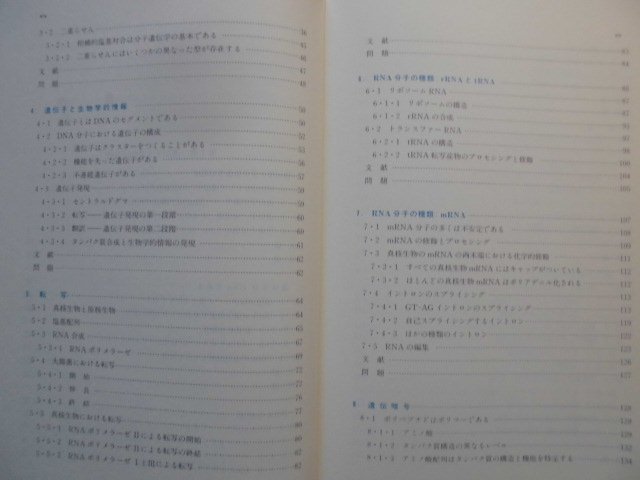 3・2 二重らせん 36
3・2・1 相補的塩基対合は分子遺伝学の基本である
3・2・2 二重らせんにはいくつかの異なった型が存在する
文 献
問 題 48
4 遺伝子と生物学的情報 50
4・1 遺伝子とはDNAのセグメントである 50
4・2 DNA分子における遺伝子の構成
4・2・1 遺伝子はクラスターをつくることがある
4・2・2 機能を失った遺伝子がある 52
4・2・3 不連続遺伝子がある
4・3 遺伝子発現
4・3・1 セントラルドグマ
4・3・2 転写——遺伝子発現の第一段階
4・3・3 翻訳——遺伝子発現の第二段階
4・3・4 タンパク質合成と生物学的情報の発現
文 献 62
問 題 62
5 転 写 64
5・1 真核生物と原核生物 64
5・2 塩基配列
5・3 RNA合成
5・3・1 RNAポリメラーゼ
5・4 大腸菌における転写
5・4・1 開 始
5・4・2 伸 長
5・4・3 終 結 77
5・5 真核生物における転写 80
5・5・1 RNAポリメラーゼⅡによる転写の開始
5・5・2 RNAポリメラーゼⅡによる転写の終結
5・5・3 RNAポリメラーゼⅠとⅢによる転写 82
文 献 83
問 題 84
6 RNA分子の種類 rRNAとtRNA
6・1 リボソームRNA
6・1・1 リボソームの構造
6・1・2 rRNAの合成
6・2 トランスファーRNA
6・2・1 tRNAの構造
6・2・2 tRNA転写産物のプロセシングと修飾
文 献
問 題 106
7 RNA分子の種類 mRNA 107
7・1 mRNA分子の多くは不安定である
7・2 mRNAの修飾とプロセシング
7・3 真核生物のmRNAの両末端における化学的修飾
7・3・1 すべての真核生物mRNAにはキャップがついている
7・3・2 ほとんどの真核生物mRNAはポリアデニル化される
7・4 イントロンのスプライシング
7・4・1 GT-AGイントロンのスプライシング
7・4・2 自己スプライシングするイントロン
7・4・3 ほかの種類のイントロン
7・5 RNAの編集
文 献
問 題 127
8 遺伝暗号 128
8・1 ポリペプチドはポリマーである 128
8・1・1 アミノ酸
8・1・2 タンパク質構造の異なるレベル
8・1・3 アミノ酸配列はタンパク質の構造と機能を特定する 134